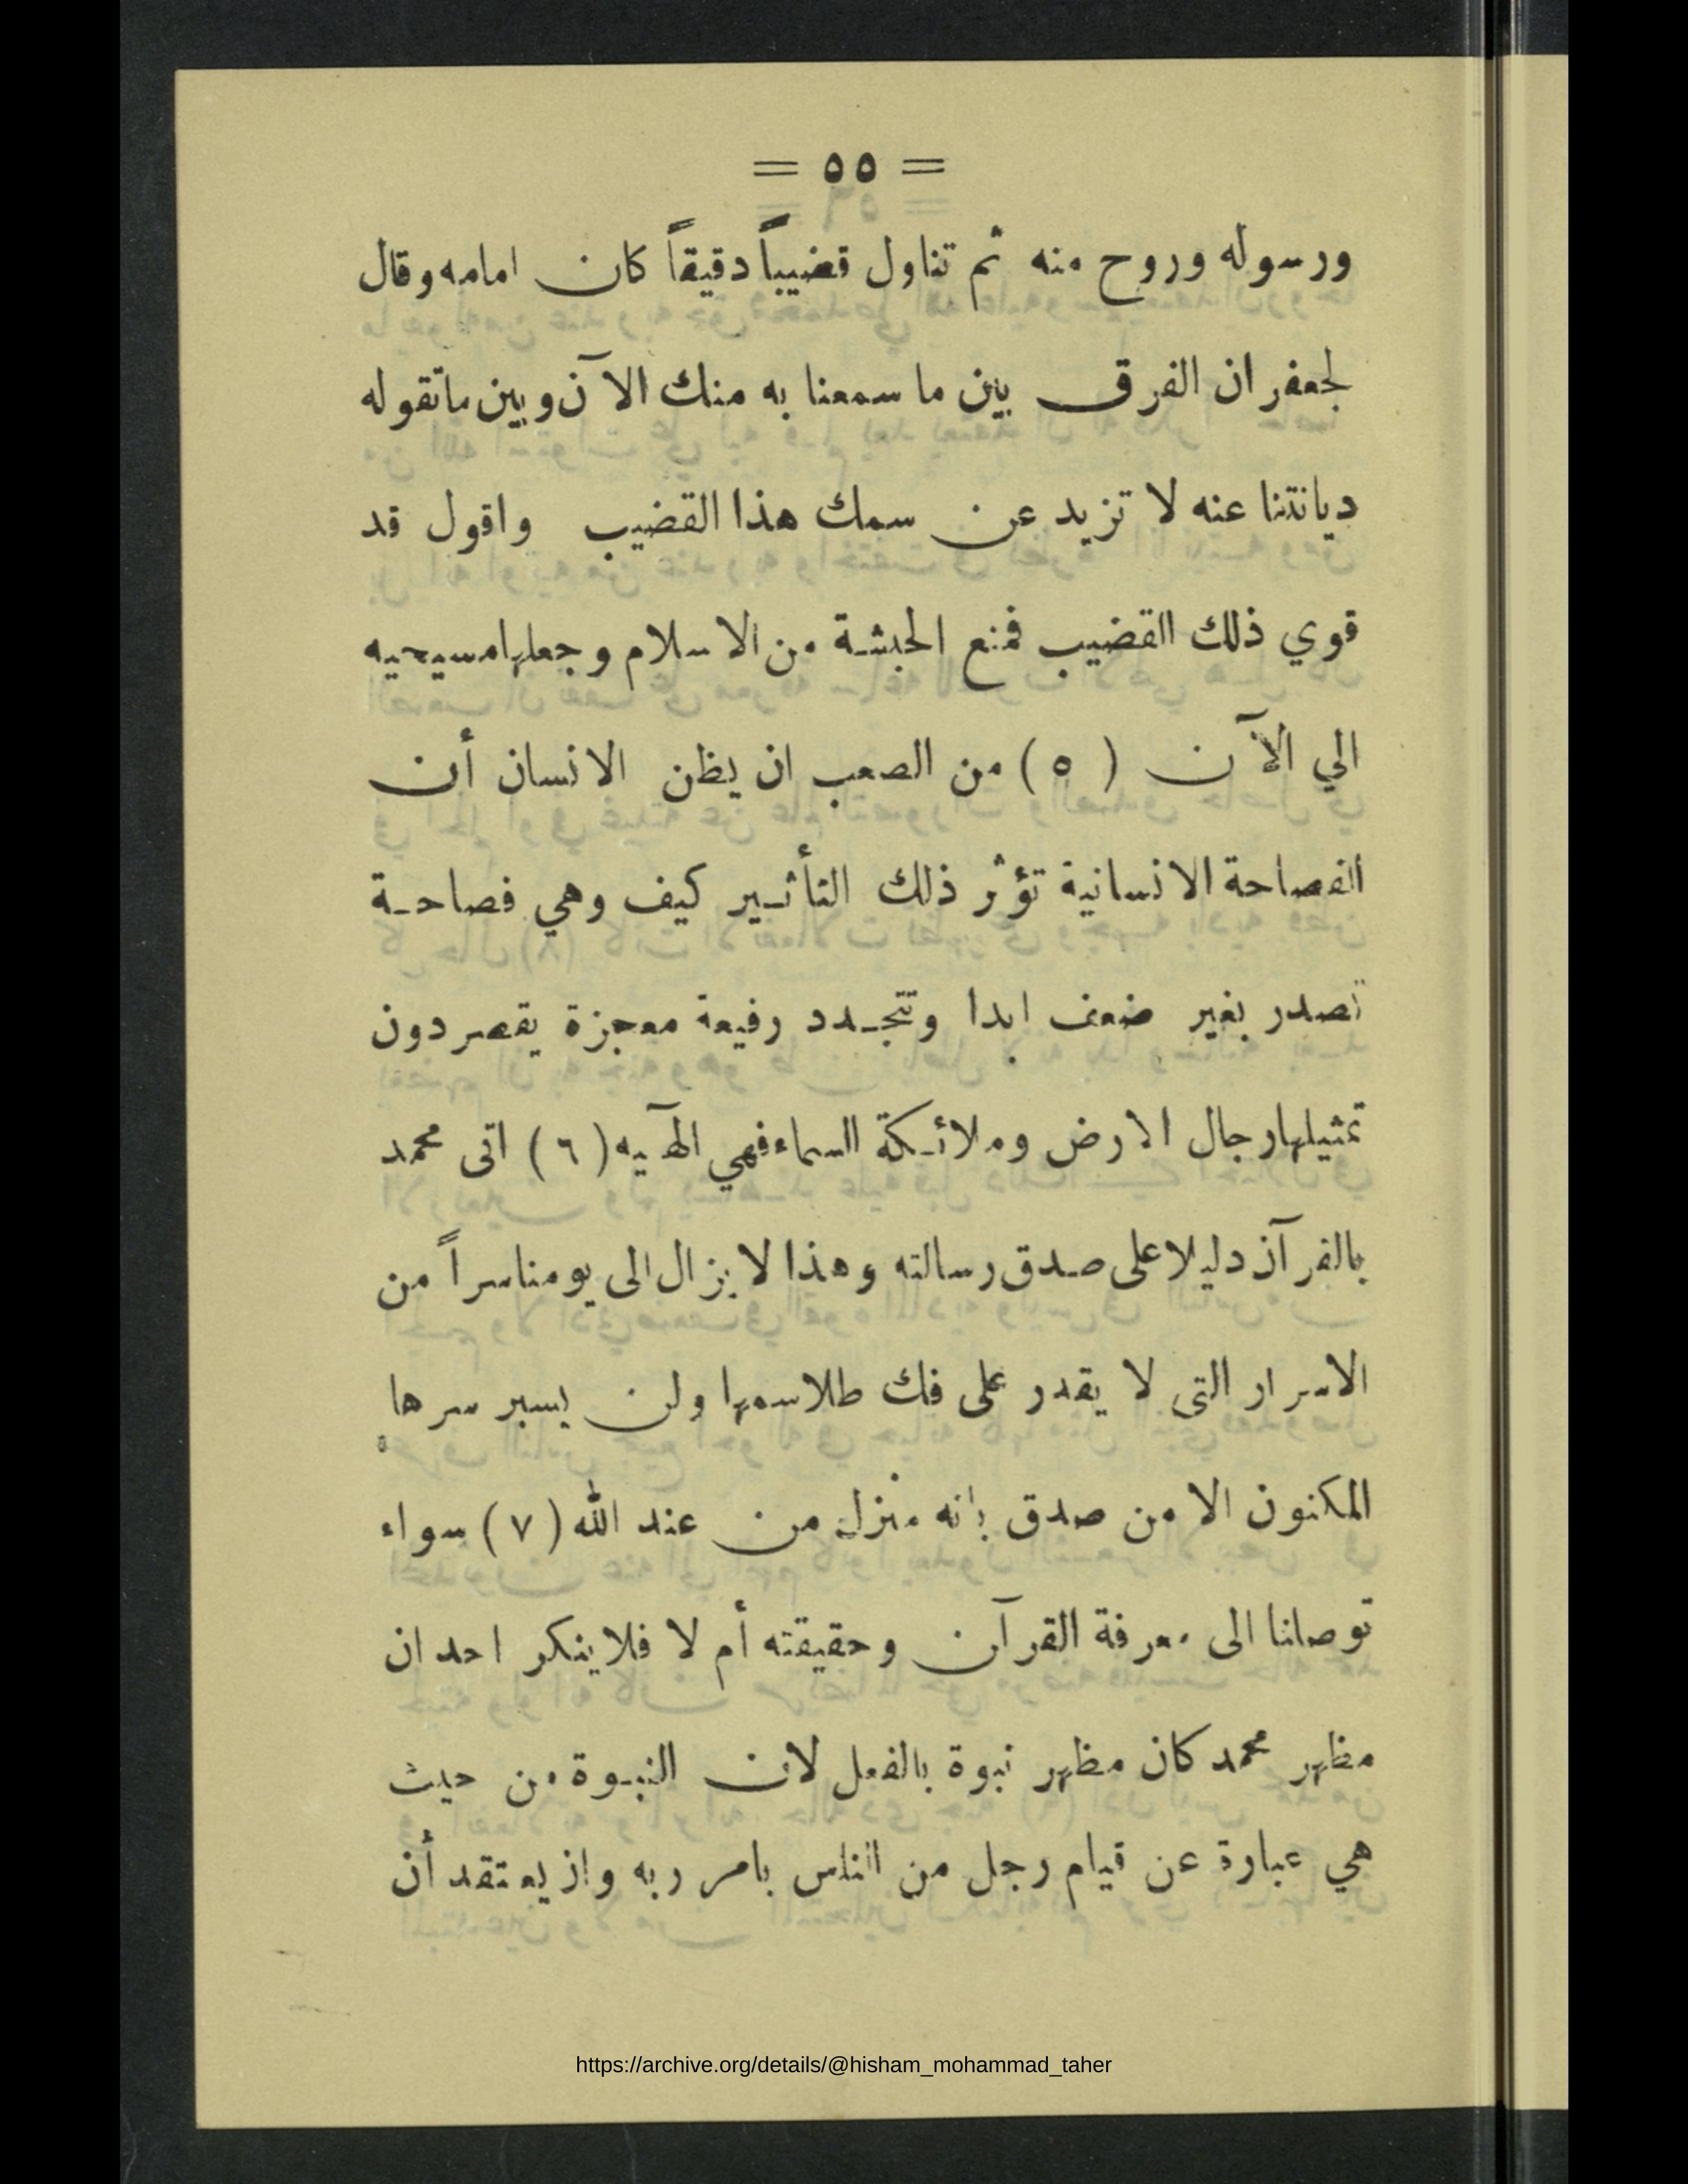 = ٥٥ =
ورسوله وروح منه ثم تناول قضيباً دقيقاً كان امامه وقال
لجعفر ان الفرق بين ما سمعنا به منك الآن وبين ماتقوله
ديانتنا عنه لا تزيد عن سمك هذا القضيب واقول قد
قوي ذلك القضيب فمنع الحبشة من الاسلام وجعلها مسيحيه
الي الآن (٥) من الصعب ان يظن الانسان أن
الفصاحة الانسانية تؤثر ذلك التأثير كيف وهي فصاحة
تصدر بغير ضعف ابدا وتتجدد رفيعة معجزة يقصر دون
تمثيلها رجال الارض وملائكة السماء فهي الهآيه (٦) اتى محمد
بالقرآن دليلا على صدق رسالته وهذا لا يزال الى يومنا سراً من
الاسرار التى لا يقدر على فك طلاسمها ولن يسبر سرها
المكنون الا من صدق بانه منزل من عند الله (٧) سواء
توصلنا الى معرفة القرآن وحقيقته أم لا فلا ينكر احد ان
مظهر محمد كان مظهر نبوة بالفعل لان النبوة من حيث
هي عبارة عن قيام رجل من الناس بامر ربه وان يعتقد أن
https://archive.org/details/@hisham_mohammad_taher